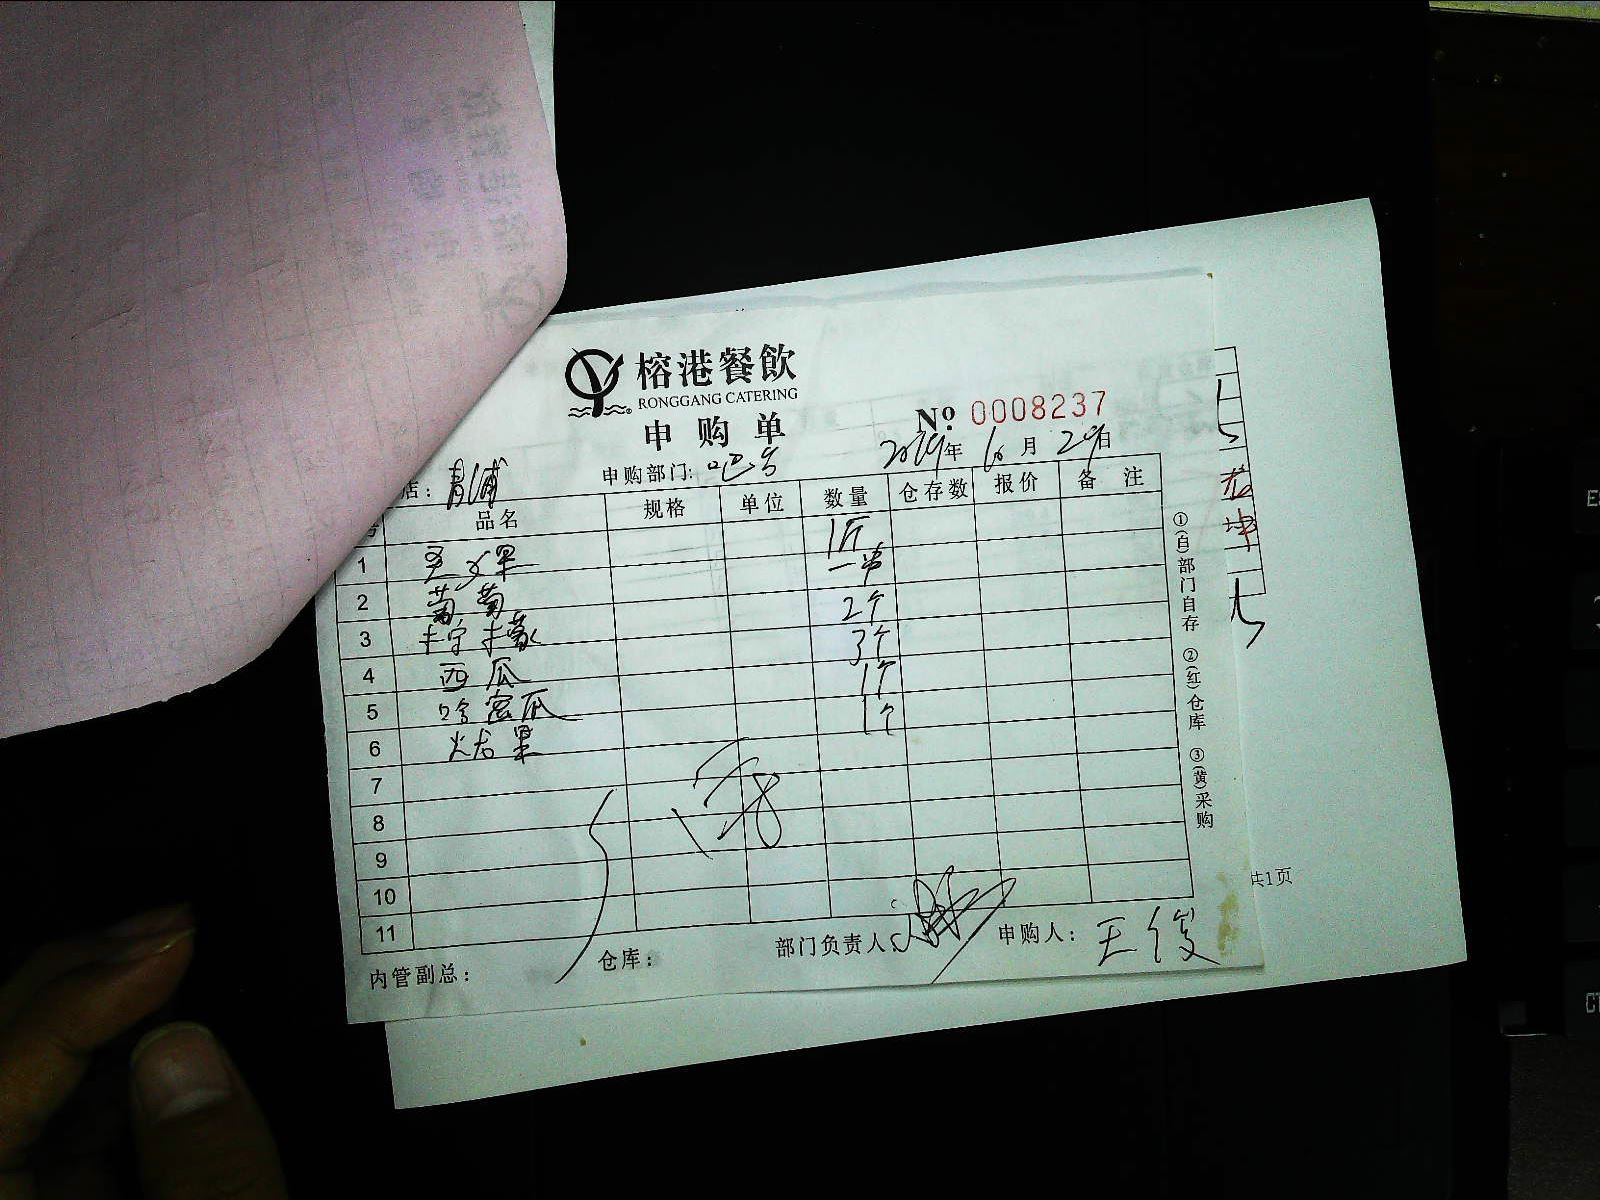 榕港餐飲
RONGGANG CATERING
申购单
№ 0008237
店: 青浦 申购部门: 吧台 2019年 6月 29日
号 品名 规格 单位 数量 仓存数 报价 备注
1 圣女果 1斤
2 葡萄 一串
3 柠檬 2个
4 西瓜 3个
5 哈密瓜 1个
6 火龙果 1个
7
8
9
10
11
内管副总: 仓库: 部门负责人: 申购人: 王俊
①(白)部门自存 ②(红)仓库 ③(黄)采购
共1页